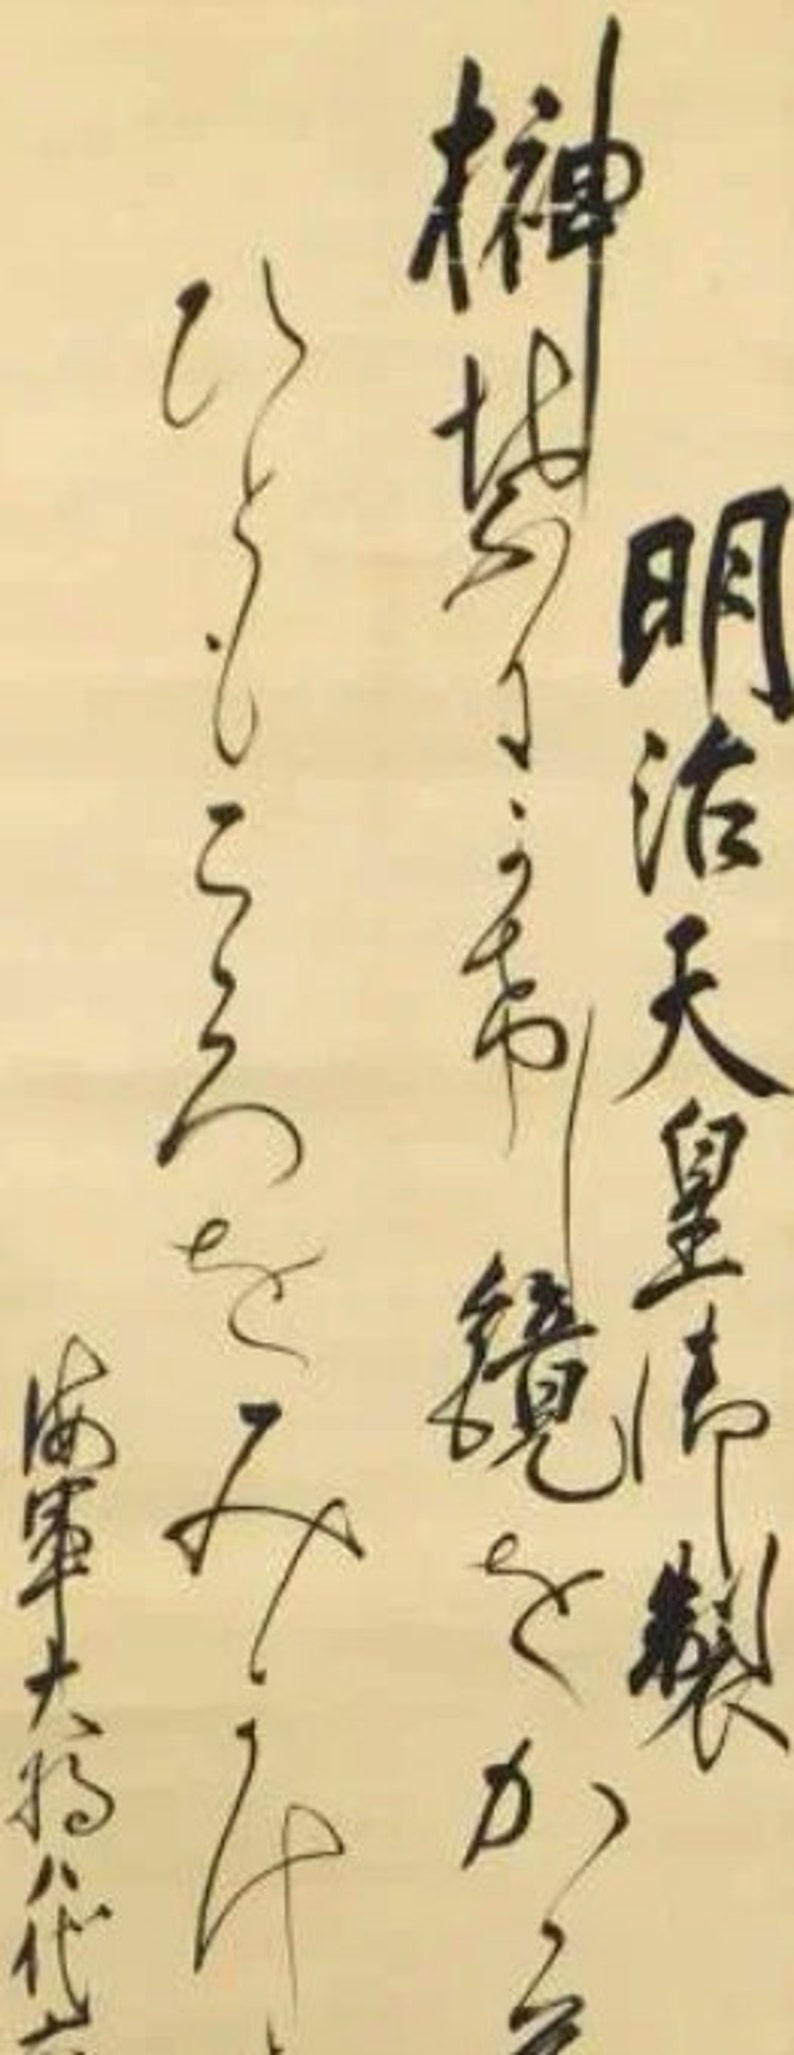 明治天皇御製
榊葉にかけし鏡をかゝ
ひともこころをみかけ
海軍大将八代